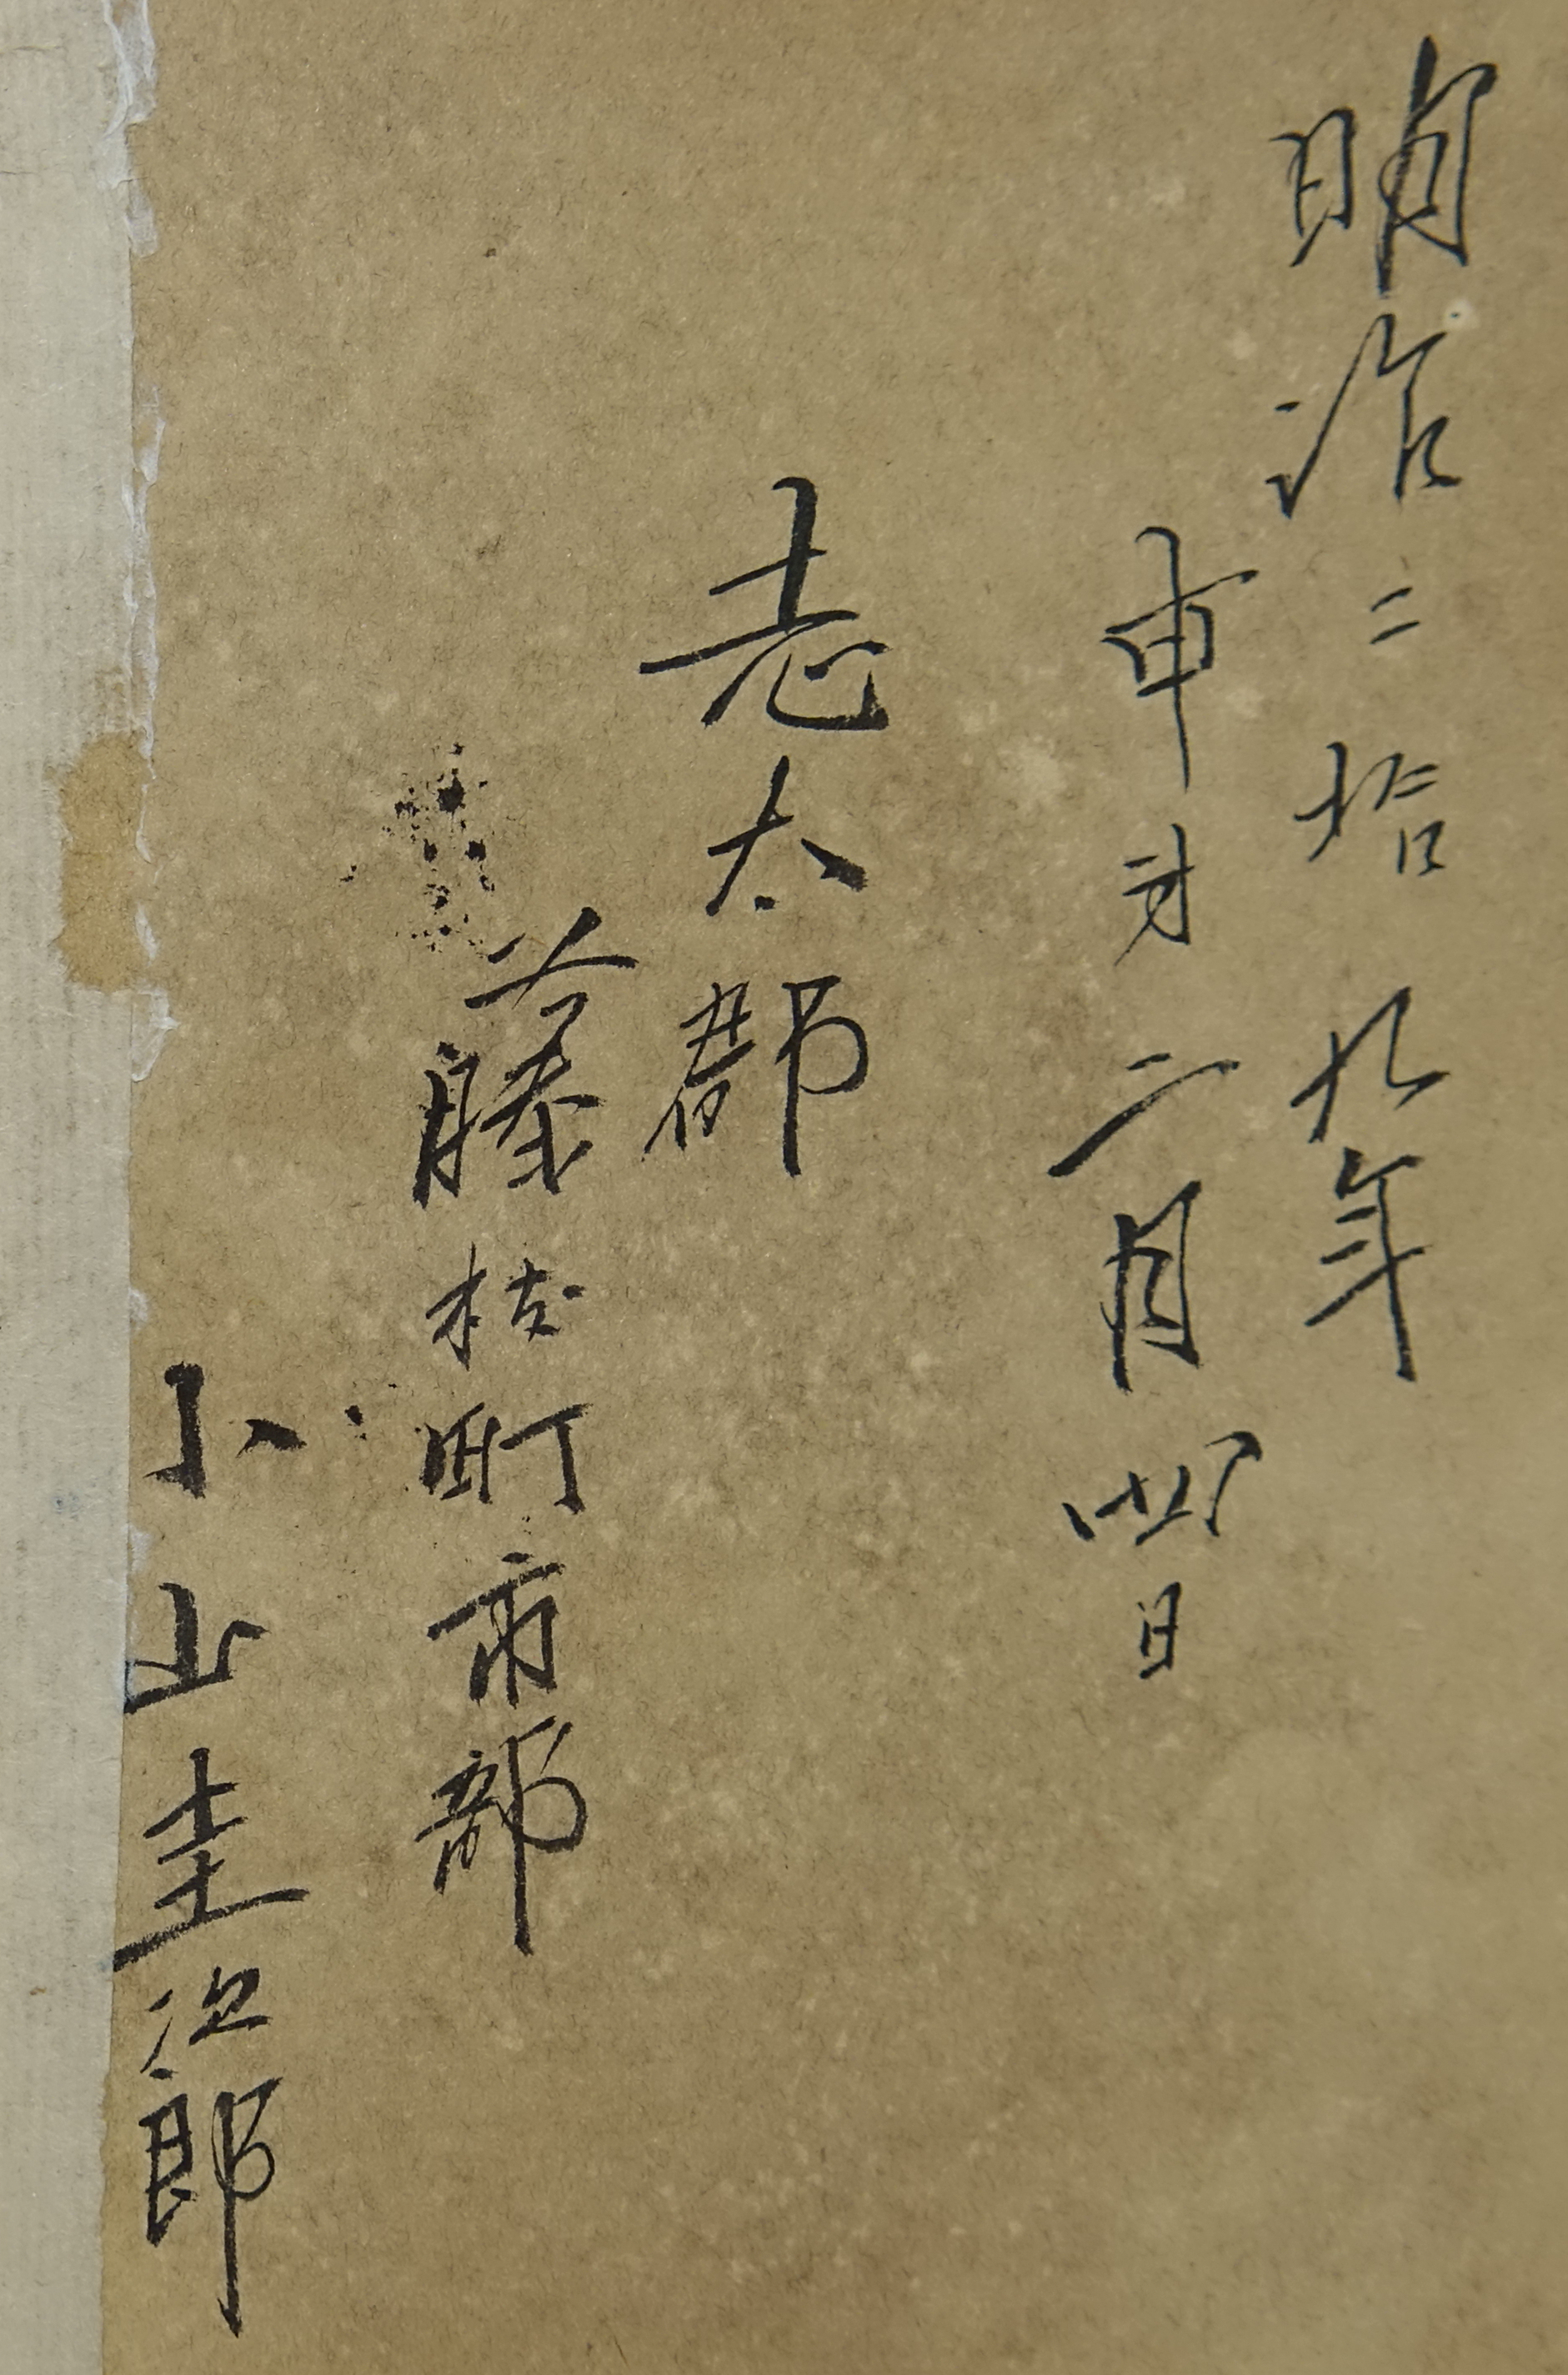 明治二拾九年
申才二月四日
志太郡
藤枝町市部
小山圭次郎